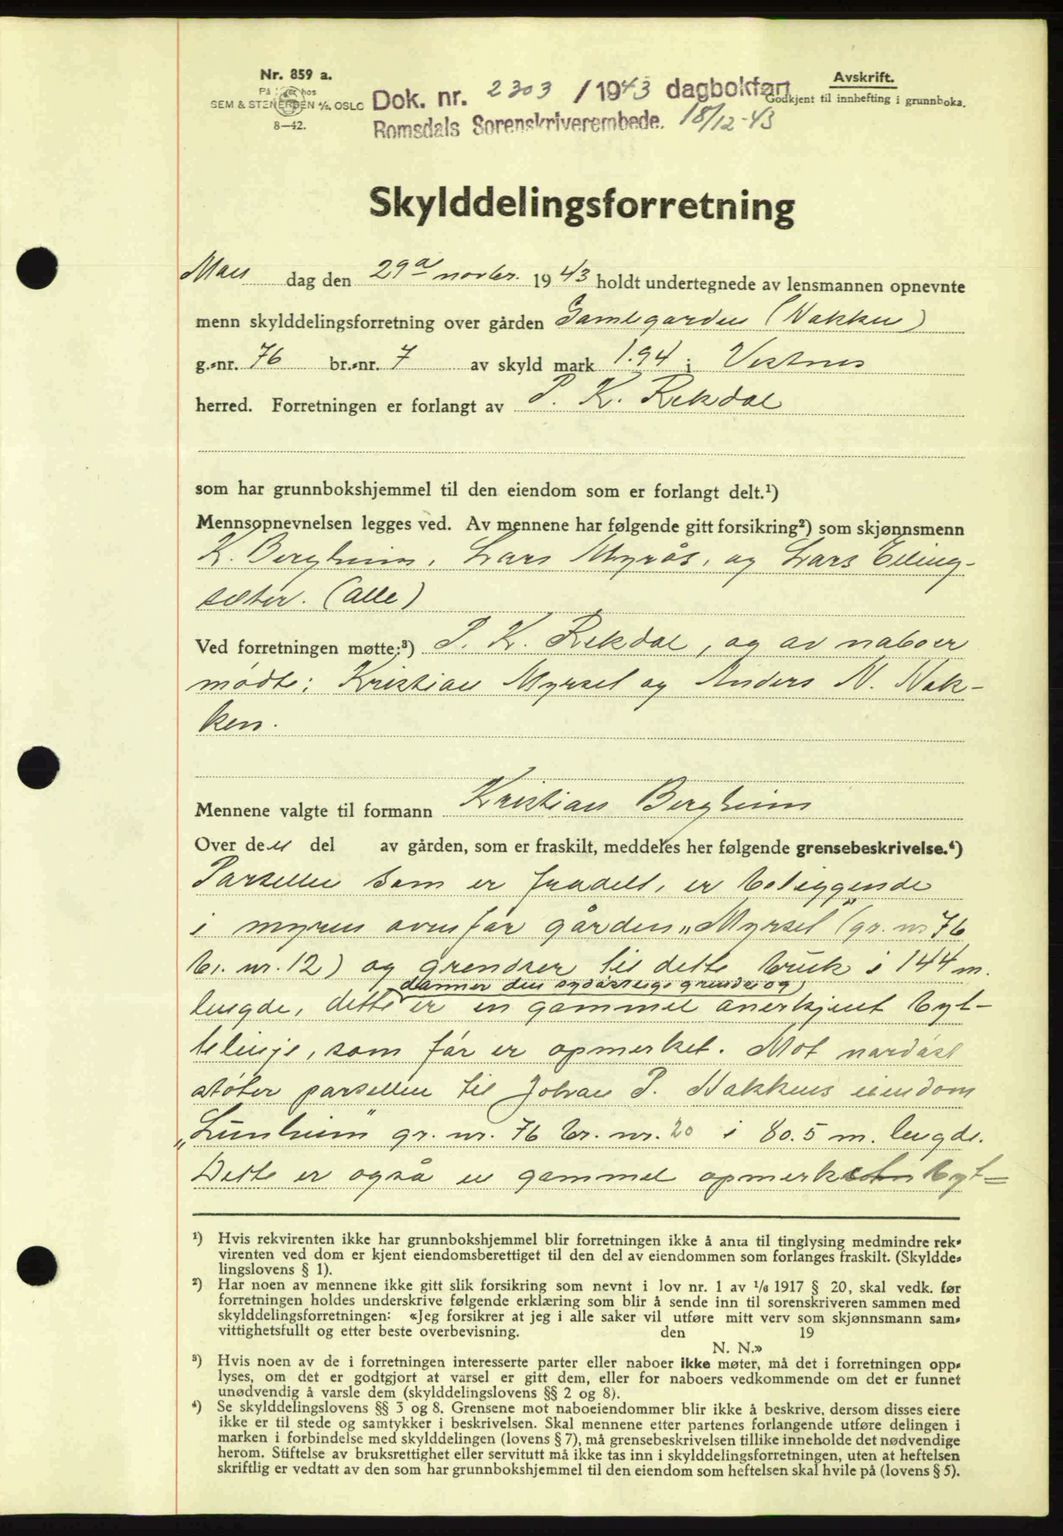 Nr. 859 a.
På lager hos
SEM & STENERSEN A/S, OSLO
8—42.
Avskrift.
Godkjent til innhefting i grunnboka.
Dok. nr. 2303 / 1943 dagbokført
Romsdals Sorenskriverembede. 18/12-43
Skylddelingsforretning
Man dag den 29de novbr. 1943 holdt undertegnede av lensmannen opnevnte
menn skylddelingsforretning over gården Gamlegarden (Nakken)
g.-nr. 76 br.-nr. 7 av skyld mark 1.94 i Vestnes
herred. Forretningen er forlangt av P. K. Rekdal
som har grunnbokshjemmel til den eiendom som er forlangt delt.¹)
Mennsopnevnelsen legges ved. Av mennene har følgende gitt forsikring²) som skjønnsmenn
K. Bergheim, Lars Myrås, og Lars Elling-
sæter. (Alle)
Ved forretningen møtte:³) P. K. Rekdal, og av naboer
mødte: Kristian Myrsel og Anders N. Nak-
ken.
Mennene valgte til formann Kristian Bergheim
Over den del av gården, som er fraskilt, meddeles her følgende grensebeskrivelse.⁴)
Parsellen som er fradelt, er beliggende
i myren ovenfor gården „Myrsel" (gr. nr 76
br. nr. 12) og grendser til dette bruk i 144 m.
danner den sydøstlige grendse og
lengde, dette er en gammel anerkjent byt-
telinje, som før er opmerket. Mot nordøst
støter parsellen til Johan P. Nakkens eiendom
„Lunheim" gr. nr. 76 br. nr. 20 i 80.5 m. lengde.
Dette er også en gammel opmerket byt=
¹) Hvis rekvirenten ikke har grunnbokshjemmel blir forretningen ikke å anta til tinglysing medmindre rek-
virenten ved dom er kjent eiendomsberettiget til den del av eiendommen som forlanges fraskilt. (Skyldde-
lingslovens § 1).
²) Har noen av mennene ikke gitt slik forsikring som nevnt i lov nr. 1 av 1/6 1917 § 20, skal vedk. før
forretningen holdes underskrive følgende erklæring som blir å sende inn til sorenskriveren sammen med
skylddelingsforretningen: «Jeg forsikrer at jeg i alle saker vil utføre mitt verv som skjønnsmann sam-
vittighetsfullt og etter beste overbevisning. den 19
N. N.»
³) Hvis noen av de i forretningen interesserte parter eller naboer ikke møter, må det i forretningen opp-
lyses, om det er godtgjort at varsel er gitt dem, eller for naboers vedkommende om det er funnet
unødvendig å varsle dem (skylddelingslovens §§ 2 og 8).
⁴) Se skylddelingslovens §§ 3 og 8. Grensene mot naboeiendommer blir ikke å beskrive, dersom disses eiere
ikke er til stede og samtykker i beskrivelsen. Skal mennene etter partenes forlangende utføre delingen i
marken i forbindelse med skylddelingen (lovens § 7), må grensebeskrivelsen tillike inneholde det nødvendige
herom. Stiftelse av bruksrettighet eller servitutt må ikke tas inn i skylddelingsforretningen, uten at heftelsen
skriftlig er vedtatt av den som har grunnbokshjemmel til den eiendom som heftelsen skal hvile på (lovens § 5).